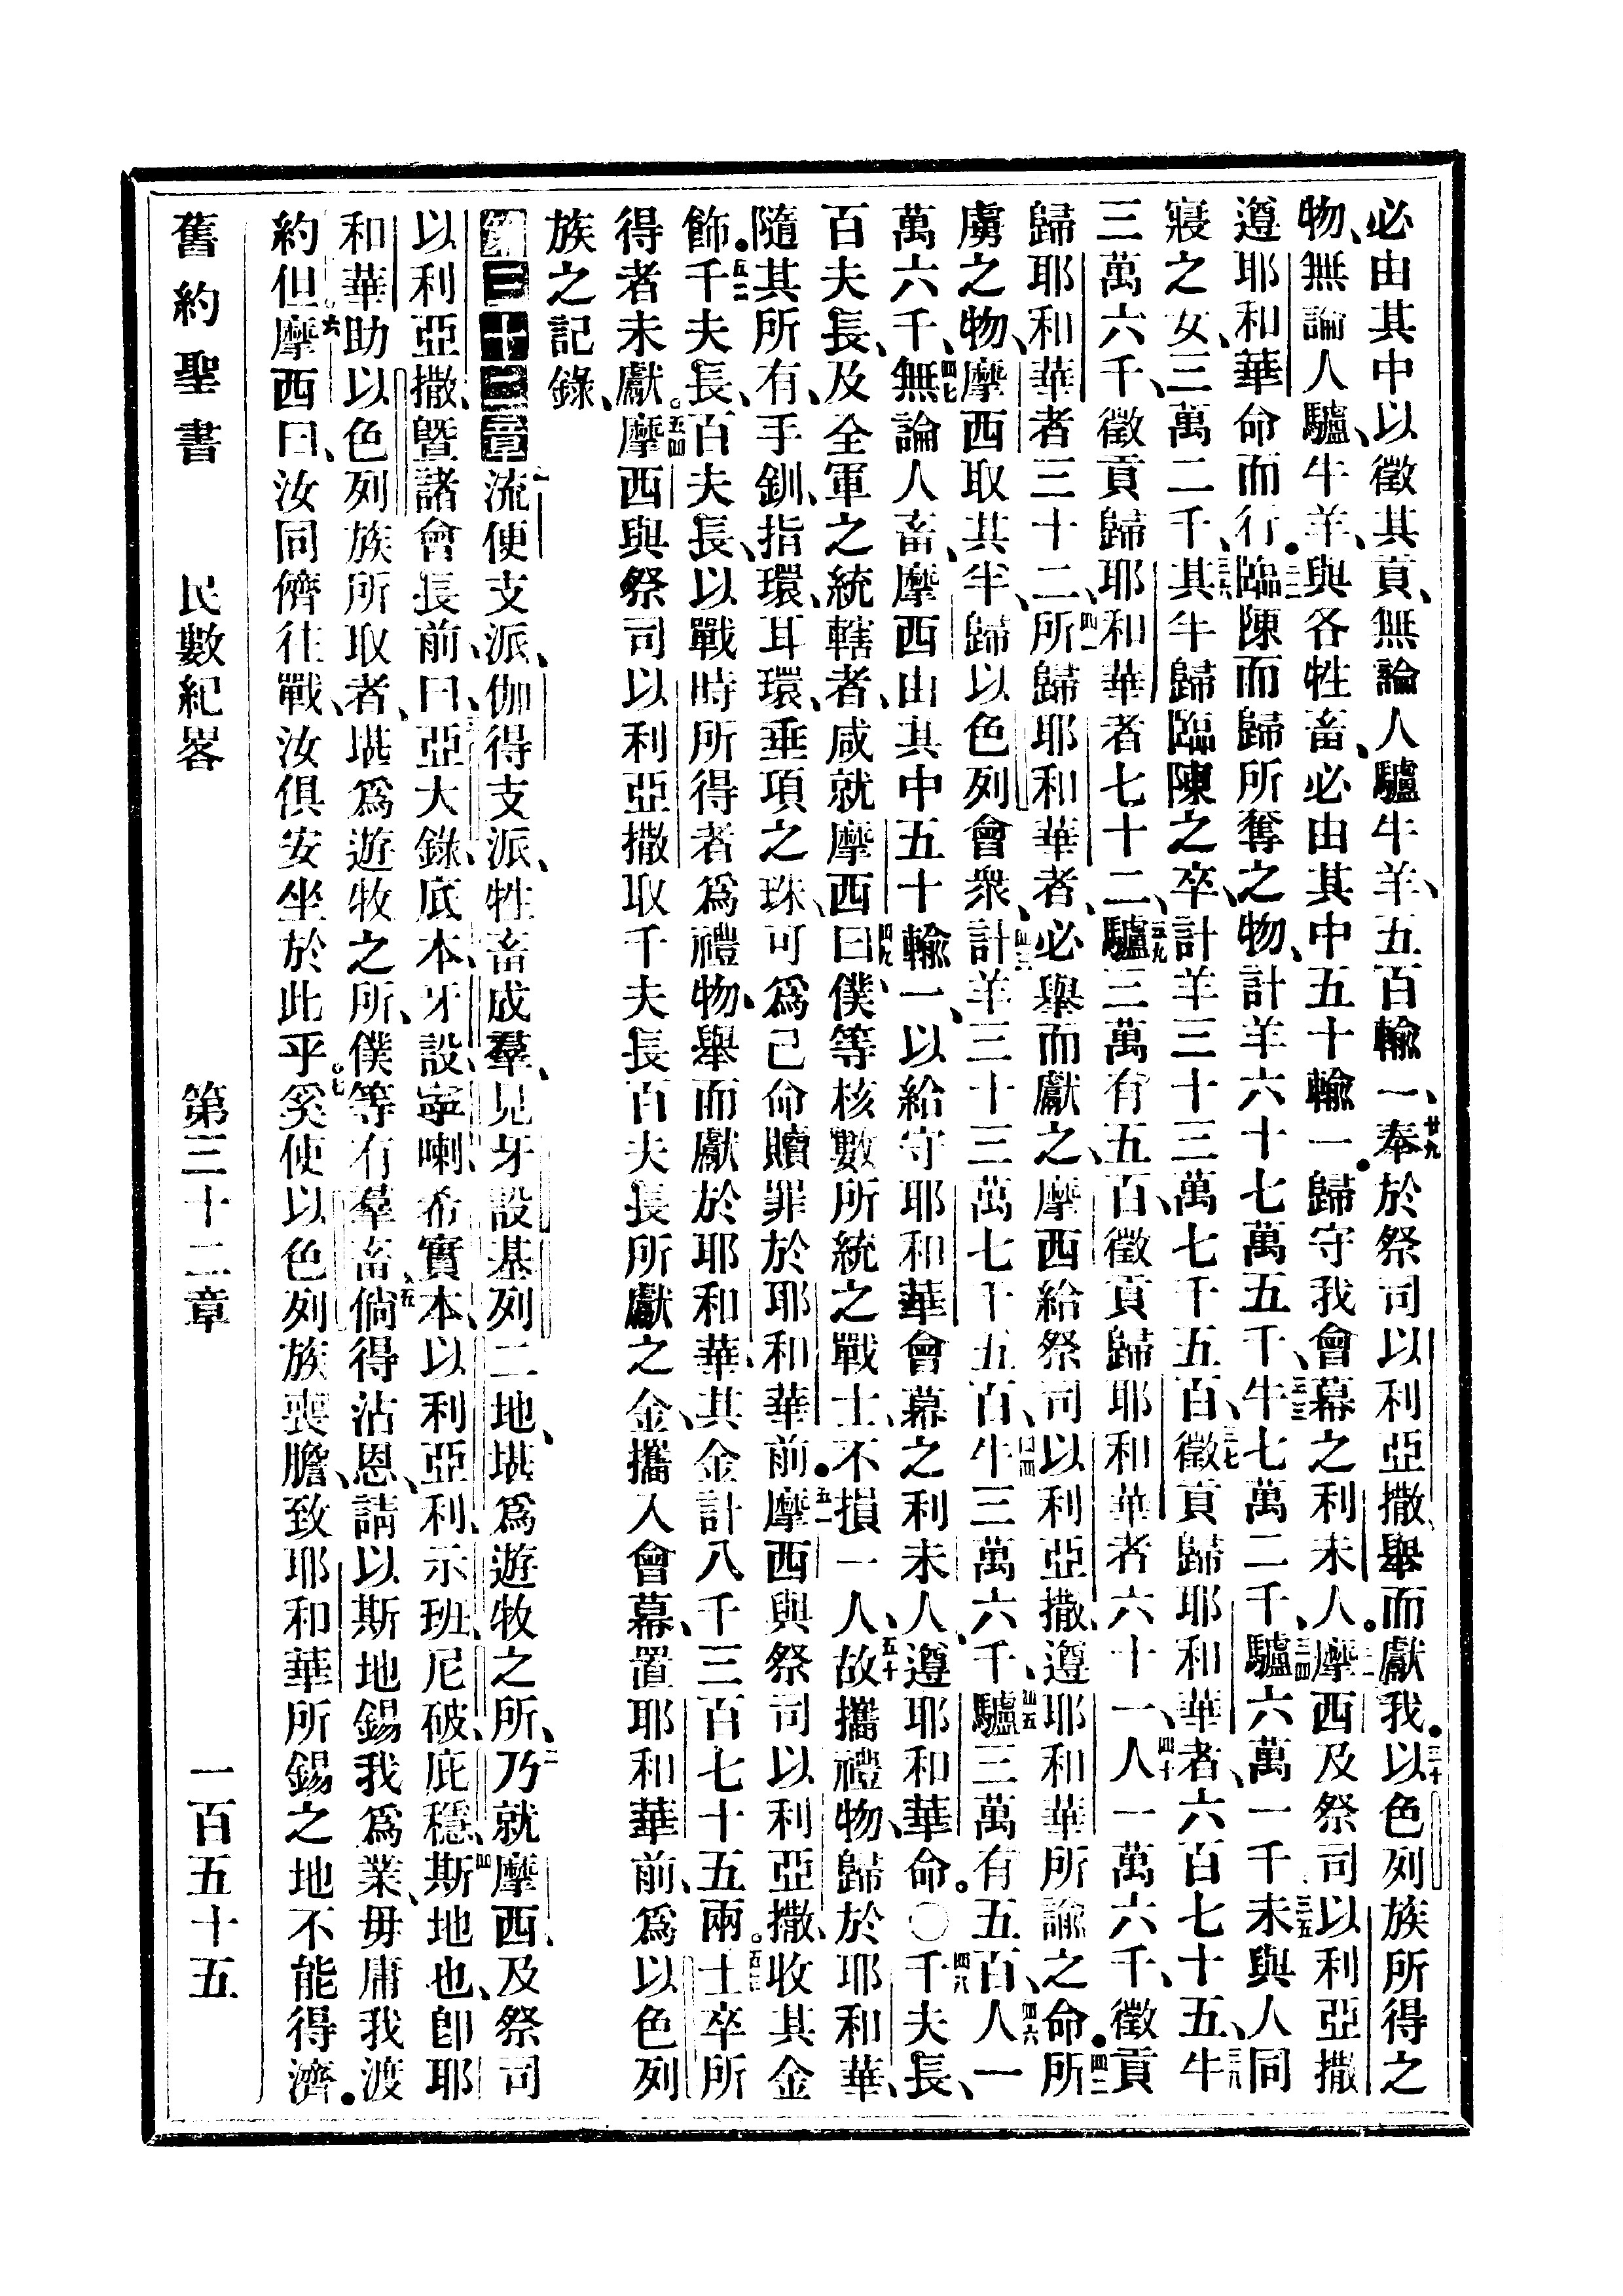 必由其中以徵其貢、無論人驢牛羊、五百輸一、廿九奉於祭司以利亞撒、舉而獻我。三十以色列族所得之
物、無論人驢、牛羊、與各牲畜、必由其中五十輸一。歸守我會幕之利未人。三一摩西及祭司以利亞撒
遵耶和華命而行。三二臨陳而歸所奪之物、計羊六十七萬五千、三三牛七萬二千、三四驢六萬一千、三五未與人同
寢之女、三萬二千、三六其半歸臨陳之卒、計羊三十三萬七千五百、三七徵貢歸耶和華者、六百七十五、三八牛
三萬六千、徵貢歸耶和華者七十二、三九驢三萬有五百、徵貢歸耶和華者六十一、四十人一萬六千、徵貢
歸耶和華者三十二、四一所歸耶和華者、必舉而獻之、摩西給祭司以利亞撒、遵耶和華所諭之命。四二所
虜之物、摩西取其半、歸以色列會衆、四三計羊三十三萬七千五百、四四牛三萬六千、四五驢三萬有五百、四六人一
萬六千、四七無論人畜、摩西由其中五十輸一、以給守耶和華會幕之利未人、遵耶和華命。〇四八千夫長、
百夫長、及全軍之統轄者、咸就摩西四九曰、僕等核數所統之戰士、不損一人、五十故攜禮物、歸於耶和華、
隨其所有、手釧、指環、耳環、垂項之珠、可爲己命贖罪於耶和華前。五一摩西與祭司以利亞撒、收其金
飾。五二千夫長、百夫長、以戰時所得者爲禮物、舉而獻於耶和華、其金計八千三百七十五兩。五三士卒所
得者未獻。五四摩西與祭司以利亞撒取千夫長百夫長所獻之金、攜入會幕、置耶和華前、爲以色列
族之記錄、
第三十二章一流便支派、伽得支派、牲畜成羣、見牙設基列二地、堪爲遊牧之所、二乃就摩西、及祭司
以利亞撒、曁諸會長前、曰、三亞大錄、底本、牙設、寧喇、希實本、以利亞利、示班、尼破、庇穩、四斯地也、卽耶
和華助以色列族所取者、堪爲遊牧之所、僕等有羣畜、五倘得沾恩、請以斯地錫我爲業、毋庸我渡
約但、六摩西曰、汝同儕往戰、汝俱安坐於此乎。七奚使以色列族喪膽、致耶和華所錫之地不能得濟。
舊約聖書 民數紀畧 第三十二章 一百五十五